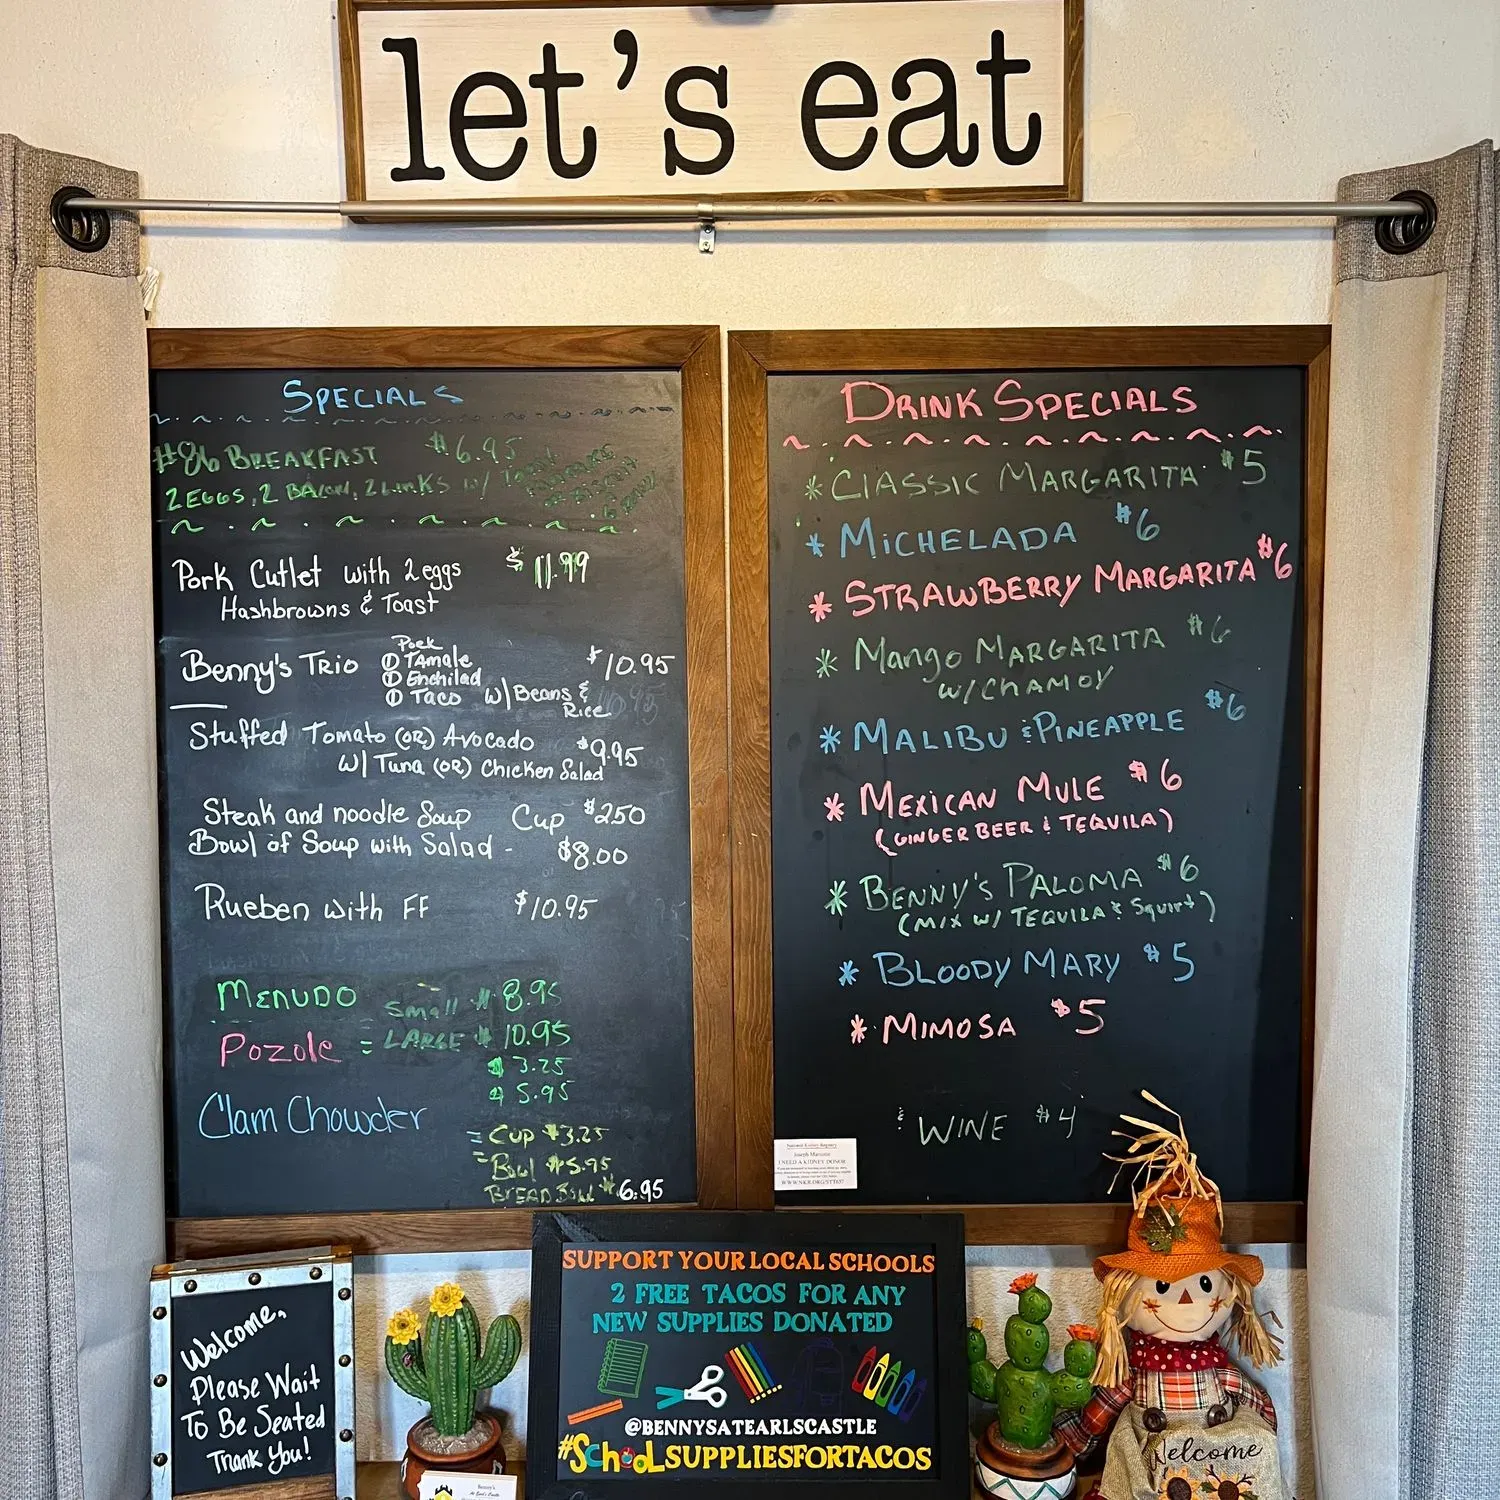 let's eat
SPECIALS
#86 BREAKFAST $6.95
2 EGGS, 2 BACON, 2 LINKS W/ TOAST
PANCAKE
OR BISCUIT
& GRAVY
Pork Cutlet with 2 eggs $11.99
Hashbrowns & Toast
Pork
Benny's TRIO ① TAmale $10.95
① Enchilad
① TACO W/ Beans &
Rice
Stuffed Tomato (OR) Avocado $9.95
W/ Tuna (OR) Chicken Salad
Steak and noodle Soup Cup $250
Bowl of Soup with Salad - $8.00
Rueben with FF $10.95
MENUDO Small $8.95
Pozole = LARGE $10.95
$3.25
$5.95
Clam Chowder
= Cup $3.25
= Bowl $5.95
BREAD BOWL $6.95
DRINK SPECIALS
* CLASSIC MARGARITA $5
* MICHELADA $6
* STRAWBERRY MARGARITA $6
* Mango MARGARITA $6
W/ CHAMOY
* MALIBU & PINEAPPLE $6
* MEXICAN MULE $6
(GINGER BEER & TEQUILA)
* BENNY'S PALOMA $6
(MIX W/ TEQUILA & Squirt)
* BLOODY MARY $5
* MIMOSA $5
& WINE $4
National Kidney Registry
I NEED A KIDNEY DONOR
SUPPORT YOUR LOCAL SCHOOLS
2 FREE TACOS FOR ANY
NEW SUPPLIES DONATED
@BENNYSATEARLSCASTLE
#SCHOOLSUPPLIESFORTACOS
Welcome,
Please Wait
To Be Seated
Thank You!
Benny's
At Earl's Castle
Welcome